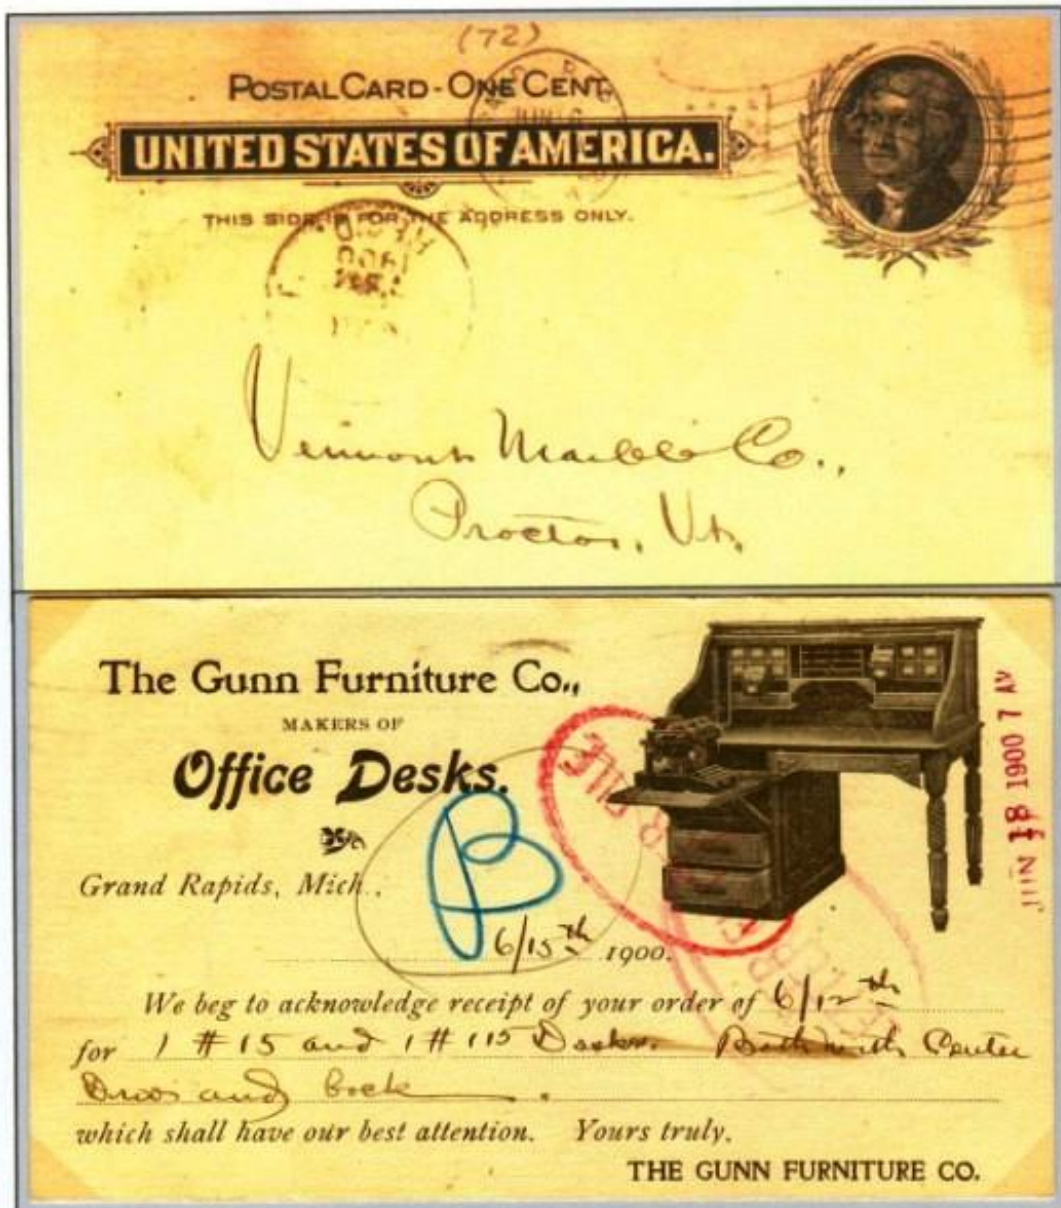 (72)
POSTAL CARD - ONE CENT.
UNITED STATES OF AMERICA.
THIS SIDE IS FOR THE ADDRESS ONLY.
REC'D.
1900
Vermont Marble Co.,
Proctor, Vt.
The Gunn Furniture Co.,
MAKERS OF
Office Desks.
B
Grand Rapids, Mich.,
6/15th 1900.
We beg to acknowledge receipt of your order of 6/12th
for 1 # 15 and 1 # 115 Desks. Both with Center
and
which shall have our best attention. Yours truly,
THE GUNN FURNITURE CO.
JUN 18 1900 7 AM
FILE